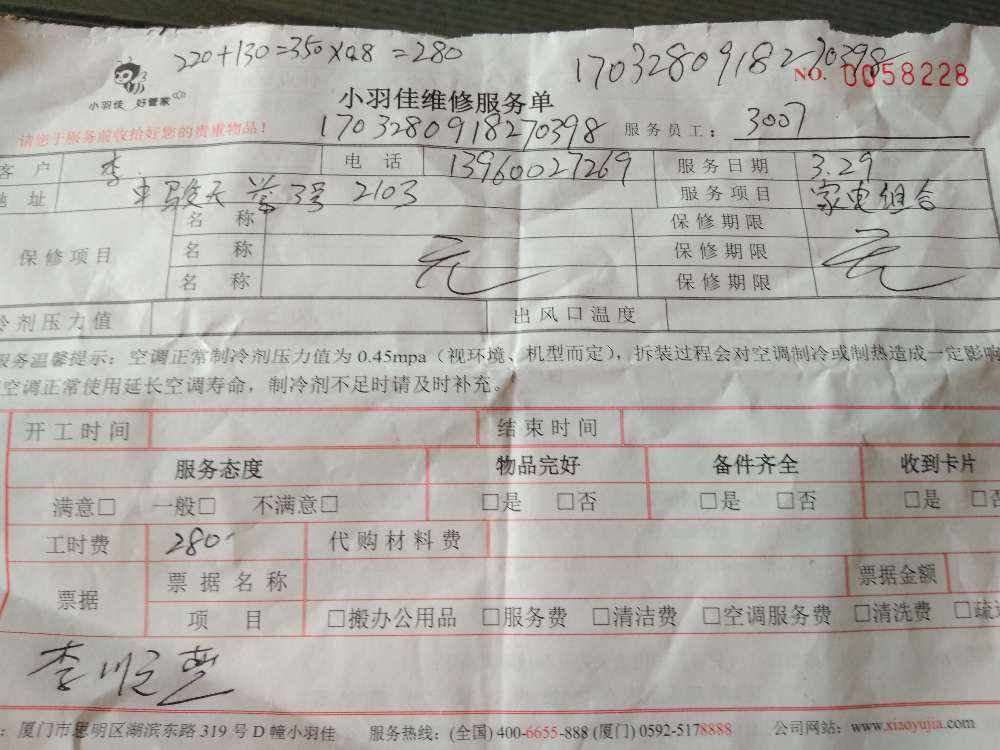 220+130=350×0.8=280
1703280918270398
NO. 0058228
小羽佳 好管家
小羽佳维修服务单
请您于服务前收拾好您的贵重物品！
1703280918270398 服务员工： 3007
客户 李 电话 13960027269 服务日期 3.29
地址 中骏天誉3号 2103 服务项目 家电组合
保修项目
名称 保修期限
名称 保修期限
名称 保修期限
冷剂压力值 出风口温度
服务温馨提示：空调正常制冷剂压力值为0.45mpa（视环境、机型而定），拆装过程会对空调制冷或制热造成一定影响
空调正常使用延长空调寿命，制冷剂不足时请及时补充。
开工时间 结束时间
服务态度 物品完好 备件齐全 收到卡片
满意□ 一般□ 不满意□ □是 □否 □是 □否 □是 □否
工时费 280 代购材料费
票据 票据名称 票据金额
项目 □搬办公用品 □服务费 □清洁费 □空调服务费 □清洗费 □疏
李
：厦门市思明区湖滨东路319号D幢小羽佳 服务热线：(全国) 400-6655-888 (厦门) 0592-5178888 公司网站：www.xiaoyujia.com